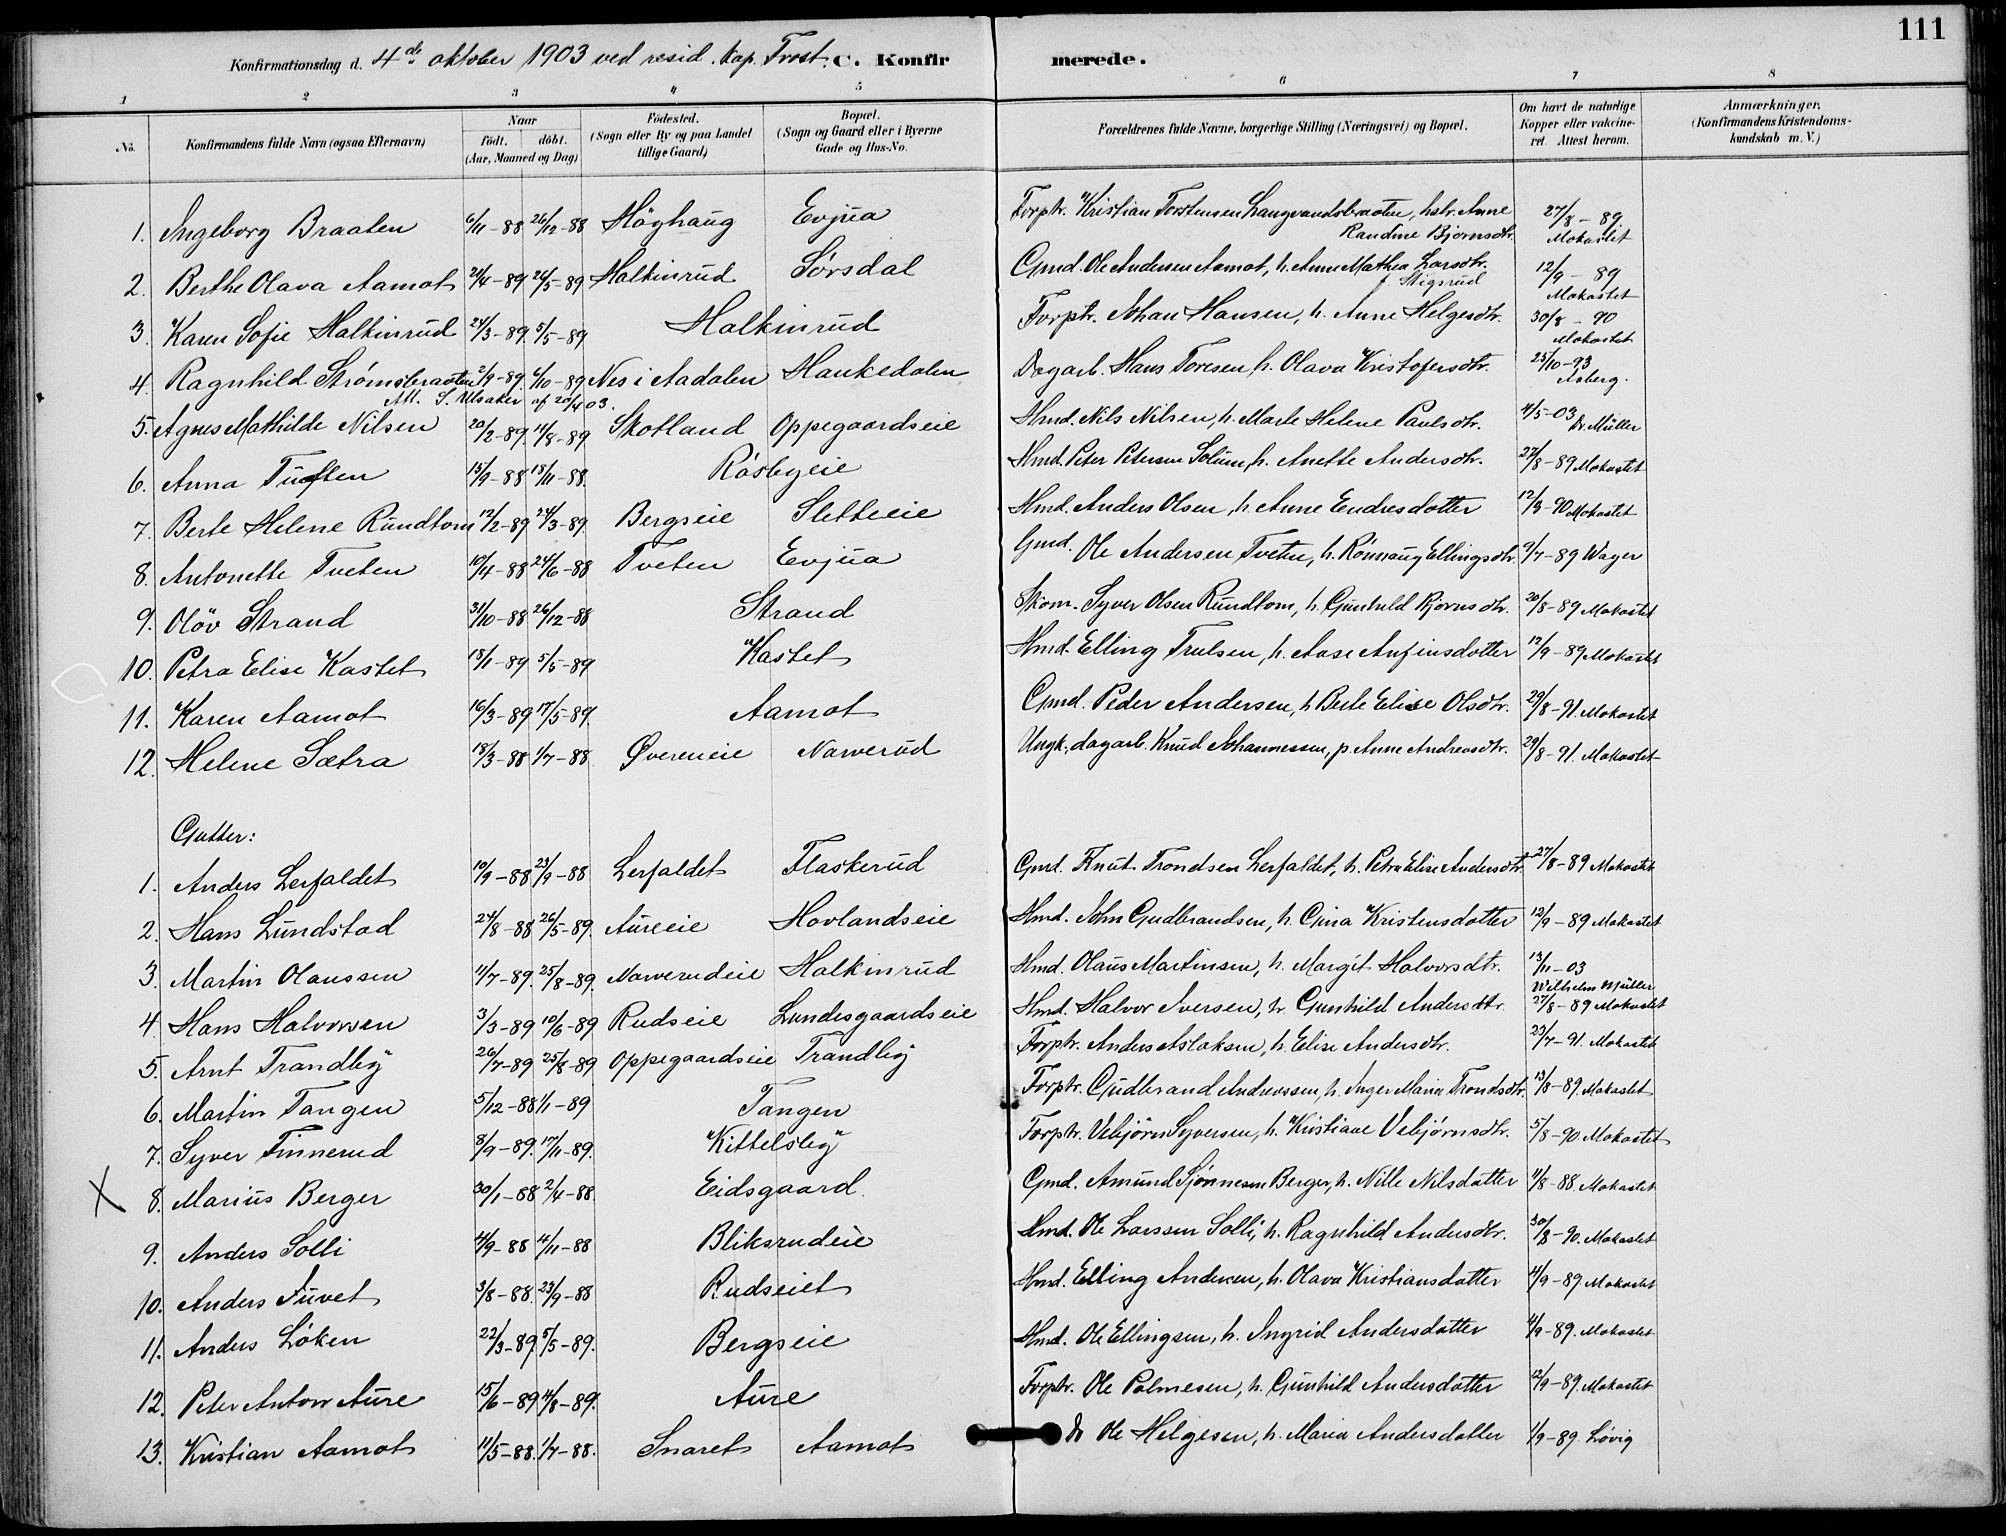 111
Konfirmationsdag d. 4de oktober 1903 ved resid. kap. Trost. C. Konfirmerede.
1 2 3 4 5 6 7 8
No. Konfirmandens fulde Navn (ogsaa Efternavn) Naar födt. döbt. (Aar, Maaned og Dag) Födested. (Sogn eller By og paa Landet tillige Gaard) Bopæl. (Sogn og Gaard eller i Byerne Gade og Hus-No. Forældrenes fulde Navne, borgerlige Stilling (Næringsvei) og Bopæl. Om havt de naturlige Kopper eller vakcineret. Attest herom. Anmærkninger. (Konfirmandens Kristendomskundskab m. V.)
1. Ingeborg Braaten 6/11-88 26/12-88 Höghaug Evjua Forptr. Kristian Torstensen Langvandsbraaten, hstr. Anne Randine Bjornsdtr. 27/8-89 Mokastet
2. Berthe Olava Aamot 21/4-89 26/5-89 Halkinrud Sørsdal Gmd. Ole Andersen Aamot, h. Anne Mathea Larsdtr. f. Stigsrud 12/9-89 Mokastet
3. Karen Sofie Halkinrud 24/3-89 5/5-89 Halkinrud Forptr. Johan Hansen, h. Anne Helgesdtr. 30/8-90 Mokastet
4. Ragnhild Strømsbraaten 2/9-89 6/10-89 Nes i Aadalen Haukedalen Dagarb. Hans Toresen, h. Olava Kristofersdtr. 25/10-93 Aaberg.
Att. S. Ulsaker af 20/4 03.
5. Agnes Mathilde Nilsen 20/2-89 11/8-89 Skotland Oppegaardseie Hmd. Nils Nilsen, h. Marte Helene Paulsdtr. 4/5-03 Dr. Müller
6. Anna Tuften 15/9-88 18/11-88. Røsbyeie Hmd. Peter Petersen Solum, h. Anette Andersdtr. 27/8-89 Mokastet
7. Berte Helene Rundtom 12/2-89 24/3-89. Bergseie Sletteeie Hmd. Anders Olsen, h. Anne Endresdotter 12/3-90 Mokastet
8. Antonette Tveten 10/4-88 24/6-88 Tveten Evjua Gmd. Ole Andersen Tveten, h. Rønnaug Ellingsdtr. 9/7-89 Wager
9. Oløv Strand 31/10-88 26/12-88 Strand Skom. Syver Olsen Rundtom, h. Gunhild Bjørnsdtr. 20/8-89 Mokastet
10. Petra Elise Kastet 18/1-89 5/5-89 Kastet Hmd. Elling Trulsen, h. Aase Anfinsdotter 12/9-89 Mokastet
11. Karen Aamot 16/3-89 17/5-89. Aamot Gmd. Peder Andersen, h. Berte Elise Olsdtr. 29/8-91. Mokastet
12. Helene Sætra 18/3-88 1/7-88 Øvereneie Narverud Ungk., dagarb. Knud Johannessen, p. Anne Andreasdtr. 29/8-91. Mokastet
Gutter:
1. Anders Lerfaldet 10/9-88 23/9-88 Lerfaldet Flaskerud Gmd. Knut Trondsen Lerfaldet, h. Petra Elise Andersdtr. 27/8-89 Mokastet
2. Hans Lundstad 24/8-88 26/5-89. Aureeie Hovlandseie Hmd. John Gudbrandsen, h. Gina Kristensdotter 12/9-89 Mokastet
3. Martin Olaussen 11/7-89. 25/8-89. Narverudeie Halkinrud Hmd. Olaus Martinsen, h. Margit Halvorsdtr. 13/11-03 Wilhelm Müller
4. Hans Halvorsen 3/3-89 10/6-89 Rudseie Lundesgaardseie Hmd. Halvor Iversen, h. Gunhild Andersdtr. 27/8-89 Mokastet
5. Arnt Trandby 26/7-89 25/8-89 Oppegaardseie Trandby Forptr. Anders Aslaksen, h. Elise Andersdtr. 23/7-91. Mokastet
6. Martin Tangen 5/12-88 1/1-89 Tangen Forptr. Gudbrand Andreassen, h. Inger Maria Trondsdtr. 13/8-89. Mokastet
7. Syver Finnerud 8/9-89. 17/11-89. Kittelsby Forptr. Vebjørn Syversen, h. Kristiane Vebjørnsdtr. 5/8-90. Mokastet
X 8. Marius Berger 30/1-88 2/4-88. Eidsgaard. Gmd. Amund Sjønnesen Berger, h. Nille Nilsdatter 11/8-88. Mokastet
9. Anders Solli 4/9-88 4/11-88 Bliksrudeie Hmd. Ole Larssen Solli, h. Ragnhild Andersdtr. 30/8-90. Mokastet
10. Anders Juvet 3/8-88. 23/9-88 Rudseiet Hmd. Elling Andersen, h. Olava Kristiansdatter 4/9-89. Mokastet
11. Anders Løken 22/3-89 5/5-89. Bergseie Hmd. Ole Ellingsen, h. Ingrid Andersdatter 4/9-89. Mokastet
12. Peter Anton Aure 15/6-89 4/8-89. Aure Forptr. Ole Palmesen, h. Gunhild Andersdatter 12/9-89. Mokastet
13. Kristian Aamot 11/5-88. 1/7-88. Snaret Aamot Do Ole Helgesen, h. Maria Andersdatter 1/9-89. Løvig